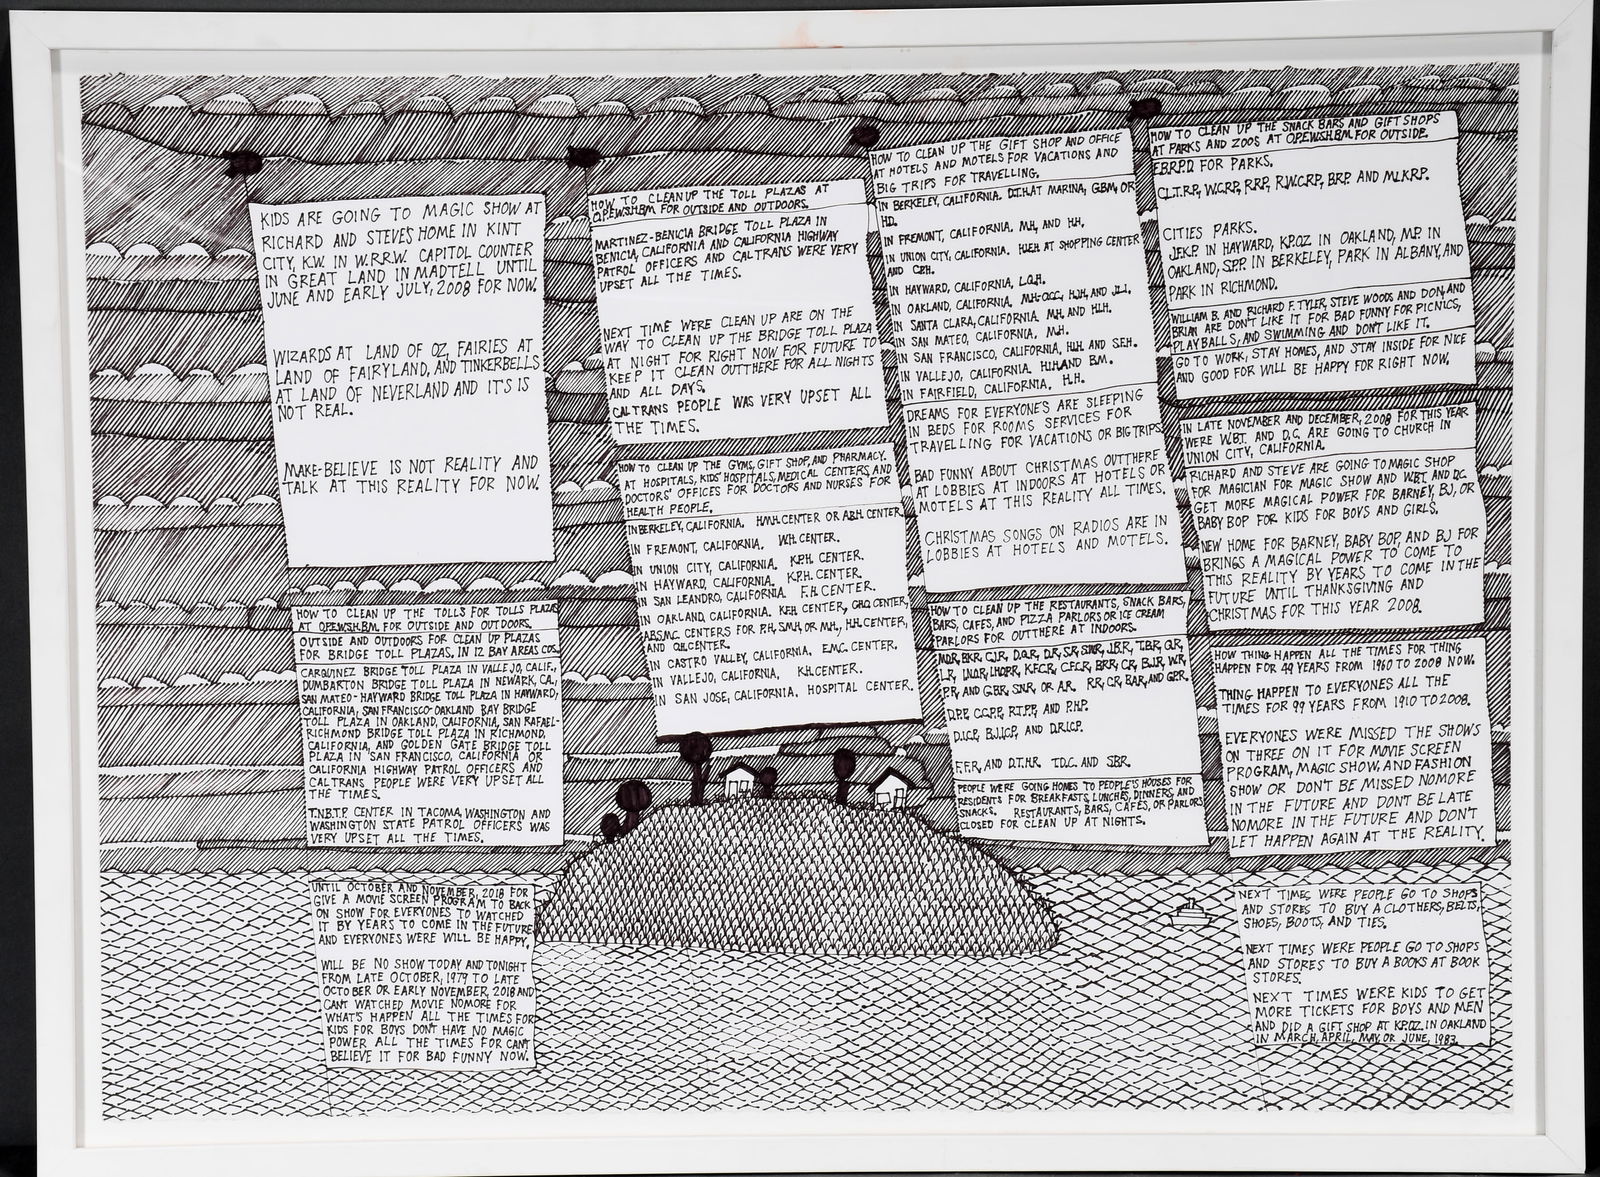 KIDS ARE GOING TO MAGIC SHOW AT
RICHARD AND STEVE'S HOME IN KINT
CITY, K.W. IN W.R.R.W. CAPITOL COUNTER
IN GREAT LAND IN MADTELL UNTIL
JUNE AND EARLY JULY, 2008 FOR NOW.
WIZARDS AT LAND OF OZ, FAIRIES AT
LAND OF FAIRYLAND, AND TINKERBELLS
AT LAND OF NEVERLAND AND IT'S IS
NOT REAL.
MAKE-BELIEVE IS NOT REALITY AND
TALK AT THIS REALITY FOR NOW.
HOW TO CLEAN UP THE TOLLS FOR TOLLS PLAZAS
AT O.P.E.W.S.H.B.M. FOR OUTSIDE AND OUTDOORS.
OUTSIDE AND OUTDOORS FOR CLEAN UP PLAZAS
FOR BRIDGE TOLL PLAZAS, IN 12 BAY AREAS COS.
CARQUINEZ BRIDGE TOLL PLAZA IN VALLEJO, CALIF.,
DUMBARTON BRIDGE TOLL PLAZA IN NEWARK, CA.,
SAN MATEO-HAYWARD BRIDGE TOLL PLAZA IN HAYWARD,
CALIFORNIA, SAN FRANCISCO-OAKLAND BAY BRIDGE
TOLL PLAZA IN OAKLAND, CALIFORNIA, SAN RAFAEL-
RICHMOND BRIDGE TOLL PLAZA IN RICHMOND,
CALIFORNIA, AND GOLDEN GATE BRIDGE TOLL
PLAZA IN SAN FRANCISCO, CALIFORNIA OR
CALIFORNIA HIGHWAY PATROL OFFICERS AND
CALTRANS PEOPLE WERE VERY UPSET ALL
THE TIMES.
T.N.B.T.P. CENTER IN TACOMA, WASHINGTON AND
WASHINGTON STATE PATROL OFFICERS WAS
VERY UPSET ALL THE TIMES.
UNTIL OCTOBER AND NOVEMBER, 2018 FOR
GIVE A MOVIE SCREEN PROGRAM TO BACK
ON SHOW FOR EVERYONES TO WATCHED
IT BY YEARS TO COME IN THE FUTURE
AND EVERYONES WERE WILL BE HAPPY.
WILL BE NO SHOW TODAY AND TONIGHT
FROM LATE OCTOBER, 1979 TO LATE
OCTOBER OR EARLY NOVEMBER, 2018 AND
CAN'T WATCHED MOVIE NOMORE FOR
WHAT'S HAPPEN ALL THE TIMES FOR
KIDS FOR BOYS DON'T HAVE NO MAGIC
POWER ALL THE TIMES FOR CAN'T
BELIEVE IT FOR BAD FUNNY NOW.
HOW TO CLEAN UP THE TOLL PLAZAS AT
O.P.E.W.S.H.B.M. FOR OUTSIDE AND OUTDOORS.
MARTINEZ-BENICIA BRIDGE TOLL PLAZA IN
BENICIA, CALIFORNIA AND CALIFORNIA HIGHWAY
PATROL OFFICERS AND CALTRANS WERE VERY
UPSET ALL THE TIMES.
NEXT TIME WERE CLEAN UP ARE ON THE
WAY TO CLEAN UP THE BRIDGE TOLL PLAZA
AT NIGHT FOR RIGHT NOW FOR FUTURE TO
KEEP IT CLEAN OUTTHERE FOR ALL NIGHTS
AND ALL DAYS.
CALTRANS PEOPLE WAS VERY UPSET ALL
THE TIMES.
HOW TO CLEAN UP THE GYMS, GIFT SHOP, AND PHARMACY.
AT HOSPITALS, KIDS' HOSPITALS, MEDICAL CENTERS, AND
DOCTORS' OFFICES FOR DOCTORS AND NURSES FOR
HEALTH PEOPLE.
IN BERKELEY, CALIFORNIA. H.M.H. CENTER OR A.B.H. CENTER.
IN FREMONT, CALIFORNIA. W.H. CENTER.
IN UNION CITY, CALIFORNIA. K.P.H. CENTER.
IN HAYWARD, CALIFORNIA. K.P.H. CENTER.
IN SAN LEANDRO, CALIFORNIA. F.H. CENTER.
IN OAKLAND, CALIFORNIA. K.F.H. CENTER, G.H.O. CENTER,
A.B.S.M.C. CENTERS FOR P.H., S.M.H. OR M.H., H.H. CENTER,
AND C.H. CENTER.
IN CASTRO VALLEY, CALIFORNIA. E.M.C. CENTER.
IN VALLEJO, CALIFORNIA. K.H. CENTER.
IN SAN JOSE, CALIFORNIA. HOSPITAL CENTER.
HOW TO CLEAN UP THE GIFT SHOP AND OFFICE
AT HOTELS AND MOTELS FOR VACATIONS AND
BIG TRIPS FOR TRAVELLING.
IN BERKELEY, CALIFORNIA. D.T.H. AT MARINA, G.B.M., OR
H.D.
IN FREMONT, CALIFORNIA. M.H. AND H.H.
IN UNION CITY, CALIFORNIA. H.I.E.H. AT SHOPPING CENTER
AND C.P.H.
IN HAYWARD, CALIFORNIA. L.Q.H.
IN OAKLAND, CALIFORNIA. M.H.-O.C.C., H.J.H., AND J.L.I.
IN SANTA CLARA, CALIFORNIA. M.H. AND H.L.H.
IN SAN MATEO, CALIFORNIA. M.H.
IN SAN FRANCISCO, CALIFORNIA. H.I.H. AND S.F.H.
IN VALLEJO, CALIFORNIA. H.I.H. AND B.M.
IN FAIRFIELD, CALIFORNIA. H.H.
DREAMS FOR EVERYONE'S ARE SLEEPING
IN BEDS FOR ROOMS SERVICES FOR
TRAVELLING FOR VACATIONS OR BIG TRIPS.
BAD FUNNY ABOUT CHRISTMAS OUTTHERE
AT LOBBIES AT INDOORS AT HOTELS OR
MOTELS AT THIS REALITY ALL TIMES.
CHRISTMAS SONGS ON RADIOS ARE IN
LOBBIES AT HOTELS AND MOTELS.
HOW TO CLEAN UP THE RESTAURANTS, SNACK BARS,
BARS, CAFES, AND PIZZA PARLORS OR ICE CREAM
PARLORS FOR OUTTHERE AT INDOORS.
D.P.P., C.C.P.P., R.T.P.P., AND P.H.P.
D.I.C.P., B.J.I.C.P., AND D.R.I.C.P.
F.F.R., AND D.T.H.R. T.D.C. AND S.B.R.
PEOPLE WERE GOING HOMES TO PEOPLE'S HOUSES FOR
RESIDENTS FOR BREAKFASTS, LUNCHES, DINNERS, AND
SNACKS. RESTAURANTS, BARS, CAFES, OR PARLORS
CLOSED FOR CLEAN UP AT NIGHTS.
HOW TO CLEAN UP THE SNACK BARS AND GIFT SHOPS
AT PARKS AND ZOOS AT O.P.E.W.S.H.B.M. FOR OUTSIDE.
E.B.R.P.D. FOR PARKS.
C.L.T.R.P., W.C.R.P., R.R.P., R.W.C.R.P., B.R.P. AND M.L.K.R.P.
CITIES PARKS.
J.F.K.P. IN HAYWARD, K.P.O.Z. IN OAKLAND, M.P. IN
OAKLAND, S.P.P. IN BERKELEY, PARK IN ALBANY, AND
PARK IN RICHMOND.
WILLIAM B. AND RICHARD F. TYLER, STEVE WOODS AND DON, AND
BRIAN ARE DON'T LIKE IT FOR BAD FUNNY FOR PICNICS,
PLAY BALLS, AND SWIMMING AND DON'T LIKE IT.
GO TO WORK, STAY HOMES, AND STAY INSIDE FOR NICE
AND GOOD FOR WILL BE HAPPY FOR RIGHT NOW.
IN LATE NOVEMBER AND DECEMBER, 2008 FOR THIS YEAR
WERE W.B.T. AND D.C. ARE GOING TO CHURCH IN
UNION CITY, CALIFORNIA.
RICHARD AND STEVE ARE GOING TO MAGIC SHOP
FOR MAGICIAN FOR MAGIC SHOW AND W.B.T. AND D.C.
GET MORE MAGICAL POWER FOR BARNEY, BJ, OR
BABY BOP FOR KIDS FOR BOYS AND GIRLS.
NEW HOME FOR BARNEY, BABY BOP, AND BJ FOR
BRINGS A MAGICAL POWER TO COME TO
THIS REALITY BY YEARS TO COME IN THE
FUTURE UNTIL THANKSGIVING AND
CHRISTMAS FOR THIS YEAR 2008.
HOW THING HAPPEN ALL THE TIMES FOR THING
HAPPEN FOR 49 YEARS FROM 1960 TO 2008 NOW.
THING HAPPEN TO EVERYONES ALL THE
TIMES FOR 99 YEARS FROM 1910 TO 2008.
EVERYONES WERE MISSED THE SHOWS
ON THREE ON IT FOR MOVIE SCREEN
PROGRAM, MAGIC SHOW, AND FASHION
SHOW OR DON'T BE MISSED NOMORE
IN THE FUTURE AND DON'T BE LATE
NOMORE IN THE FUTURE AND DON'T
LET HAPPEN AGAIN AT THE REALITY.
NEXT TIMES WERE PEOPLE GO TO SHOPS
AND STORES TO BUY A CLOTHERS, BELTS,
SHOES, BOOTS, AND TIES.
NEXT TIMES WERE PEOPLE GO TO SHOPS
AND STORES TO BUY A BOOKS AT BOOK
STORES.
NEXT TIMES WERE KIDS TO GET
MORE TICKETS FOR BOYS AND MEN
AND DID A GIFT SHOP AT K.P.O.Z. IN OAKLAND
IN MARCH, APRIL, MAY, OR JUNE, 1983.